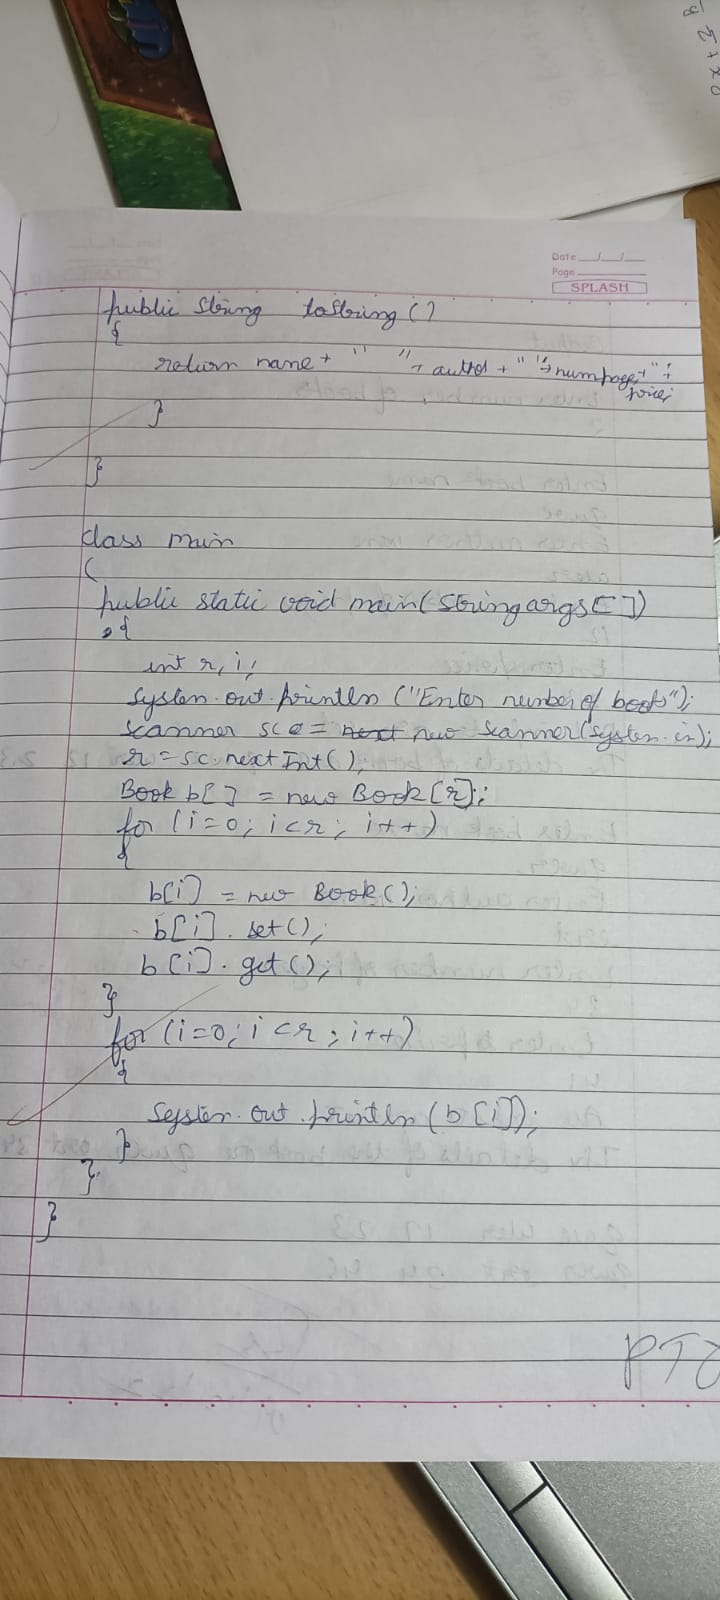 Date
Page
SPLASH
public String toString()
{
return name + " " + author + " " + numpages + " " +
price;
}
}
class main
{
public static void main(String args[])
{
int r, i;
System.out.println("Enter number of books");
Scanner sc = new Scanner(System.in);
r = sc.nextInt();
Book b[] = new Book[r];
for (i=0; i<r; i++)
{
b[i] = new Book();
b[i].set();
b[i].get();
}
for (i=0; i<r; i++)
{
System.out.println(b[i]);
}
}
}
PTO